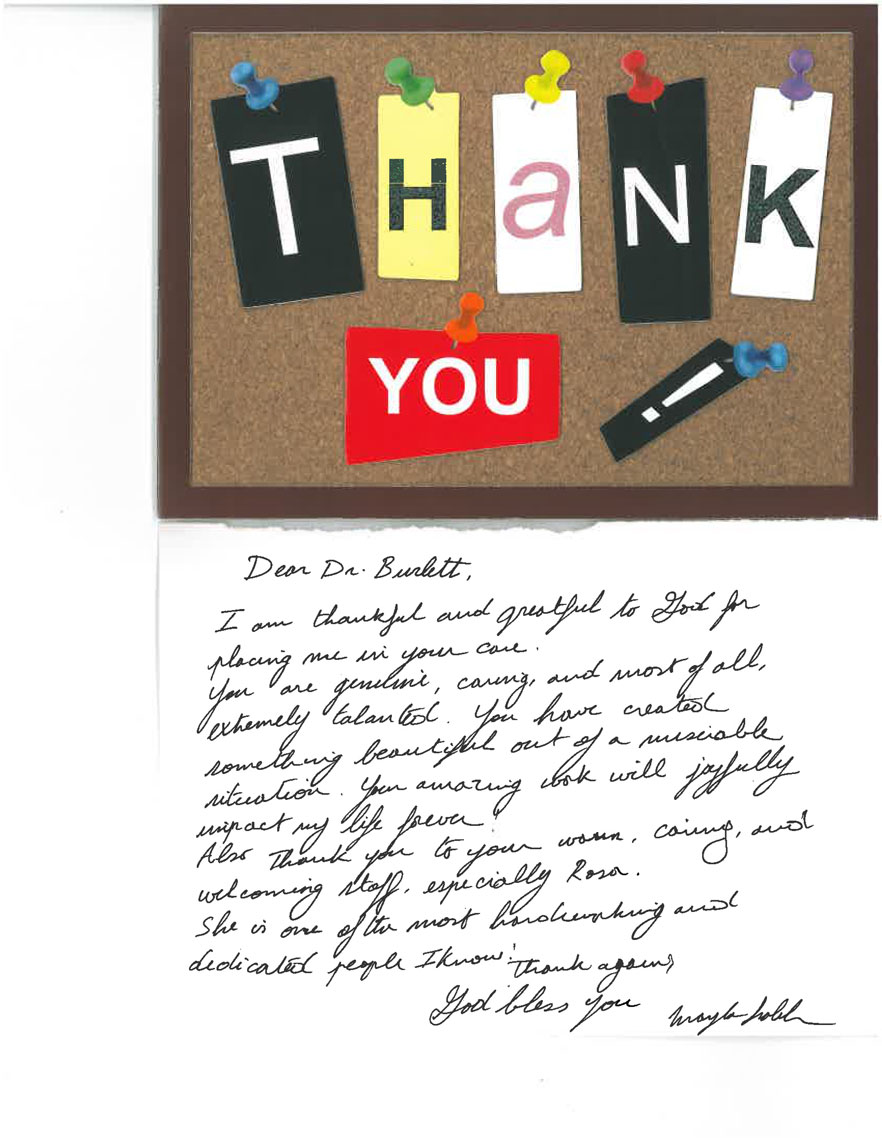 THaNK
YOU !
Dear Dr. Burlett,
I am thankful and greatful to God for
placing me in your care.
You are genuine, caring, and most of all,
extremely talanted. You have created
something beautiful out of a miserable
situation. Your amazing work will joyfully
impact my life forever!
Also Thank you to your warm, caring, and
welcoming staff, especially Rosa.
She is one of the most hardworking and
dedicated people I know!
Thank again,
God bless you